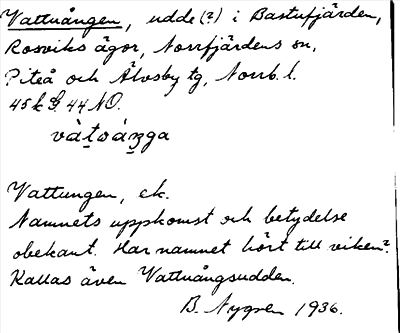 Vattuången, udde (?) i Bastufjärden,
Rosviks ägor, Norrfjärdens sn,
Piteå och Älvsby tg, Norrb. l.
45 k S. 44 NO.
và̀t̲oán̲ga
Vattungen, ek.
Namnets uppkomst och betydelse
obekant. Har namnet hört till viken?
Kallas även Vattuångsudden.
B. Nygren 1936.